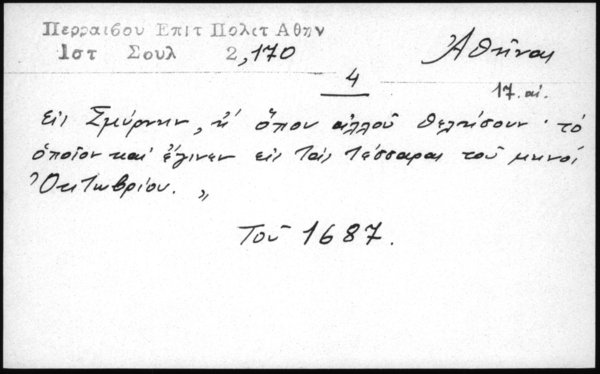 Περραιβου Επιτ Πολιτ Αθην
Ιστ Σουλ 2,170
Ἀθῆναι
4
17. αἰ.
εἰς Σμύρνην, ἢ ὅπου ἀλλοῦ θελήσουν· τὸ
ὁποῖον καὶ ἔγινεν εἰς τὰς τέσσαρας τοῦ μηνός
Ὀκτωβρίου. „
Τοῦ 1687.